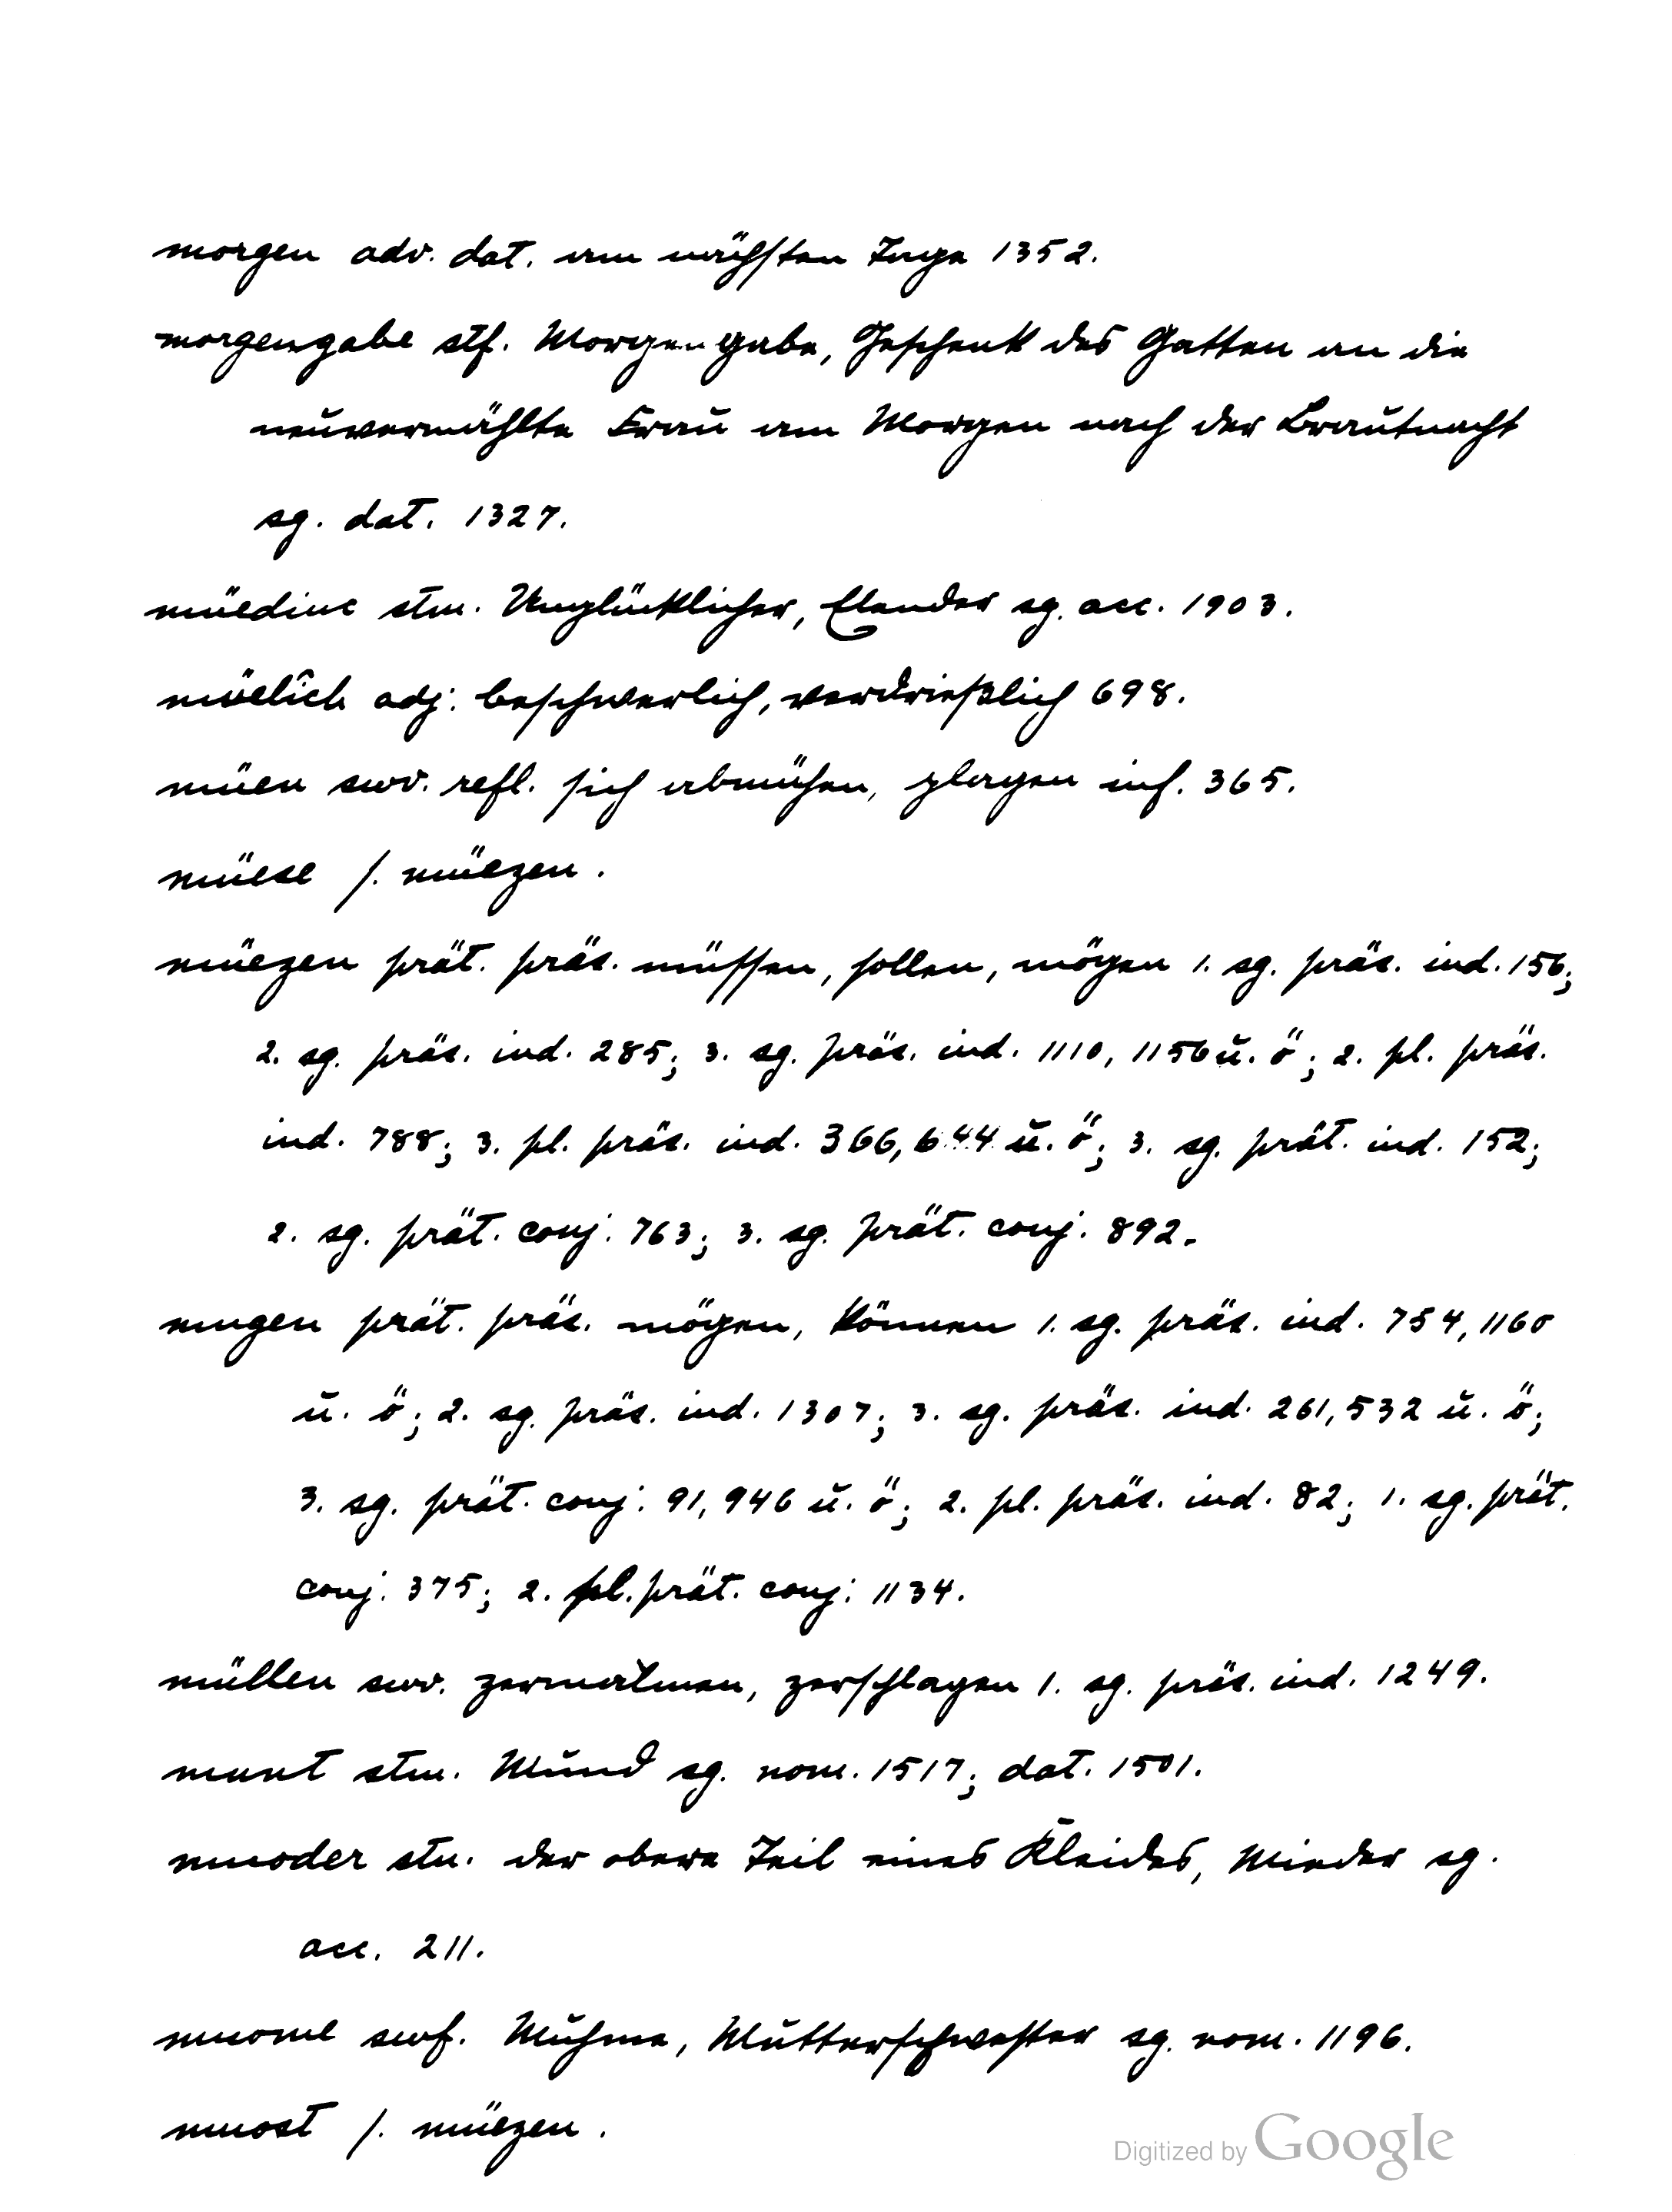 morgen adv. dat. am nächsten Tage 1352.
morgengabe stf. Morgengabe, Geschenk des Gatten an die
neuvermählte Frau am Morgen nach der Brautnacht
sg. dat. 1327.
müedinc stm. Unglücklicher, Elender sg. acc. 1903.
müelîch adj. beschwerlich, verdrießlich 698.
müen swv. refl. sich abmühen, plagen inf. 365.
müese s. müezen.
müezen prät. präs. müssen, sollen, mögen 1. sg. präs. ind. 156;
2. sg. präs. ind. 285; 3. sg. präs. ind. 1110, 1156 u. ö; 2. pl. präs.
ind. 788; 3. pl. präs. ind. 366, 644 u. ö; 3. sg. prät. ind. 152;
2. sg. prät. conj. 763; 3. sg. prät. conj. 892.
mugen prät. präs. mögen, können 1. sg. präs. ind. 754, 1160
u. ö; 2. sg. präs. ind. 1307; 3. sg. präs. ind. 261, 532 u. ö;
3. sg. prät. conj. 91, 946 u. ö; 2. pl. präs. ind. 82; 1. sg. prät.
conj. 375; 2. pl. prät. conj. 1134.
müllen swv. zermalmen, zerschlagen 1. sg. präs. ind. 1249.
munt stm. Mund sg. nom. 1517; dat. 1501.
muoder stn. der obere Teil eines Kleides, Mieder sg.
acc. 211.
muome swf. Muhme, Mutterschwester sg. nom. 1196.
muost s. müezen.
Digitized by Google